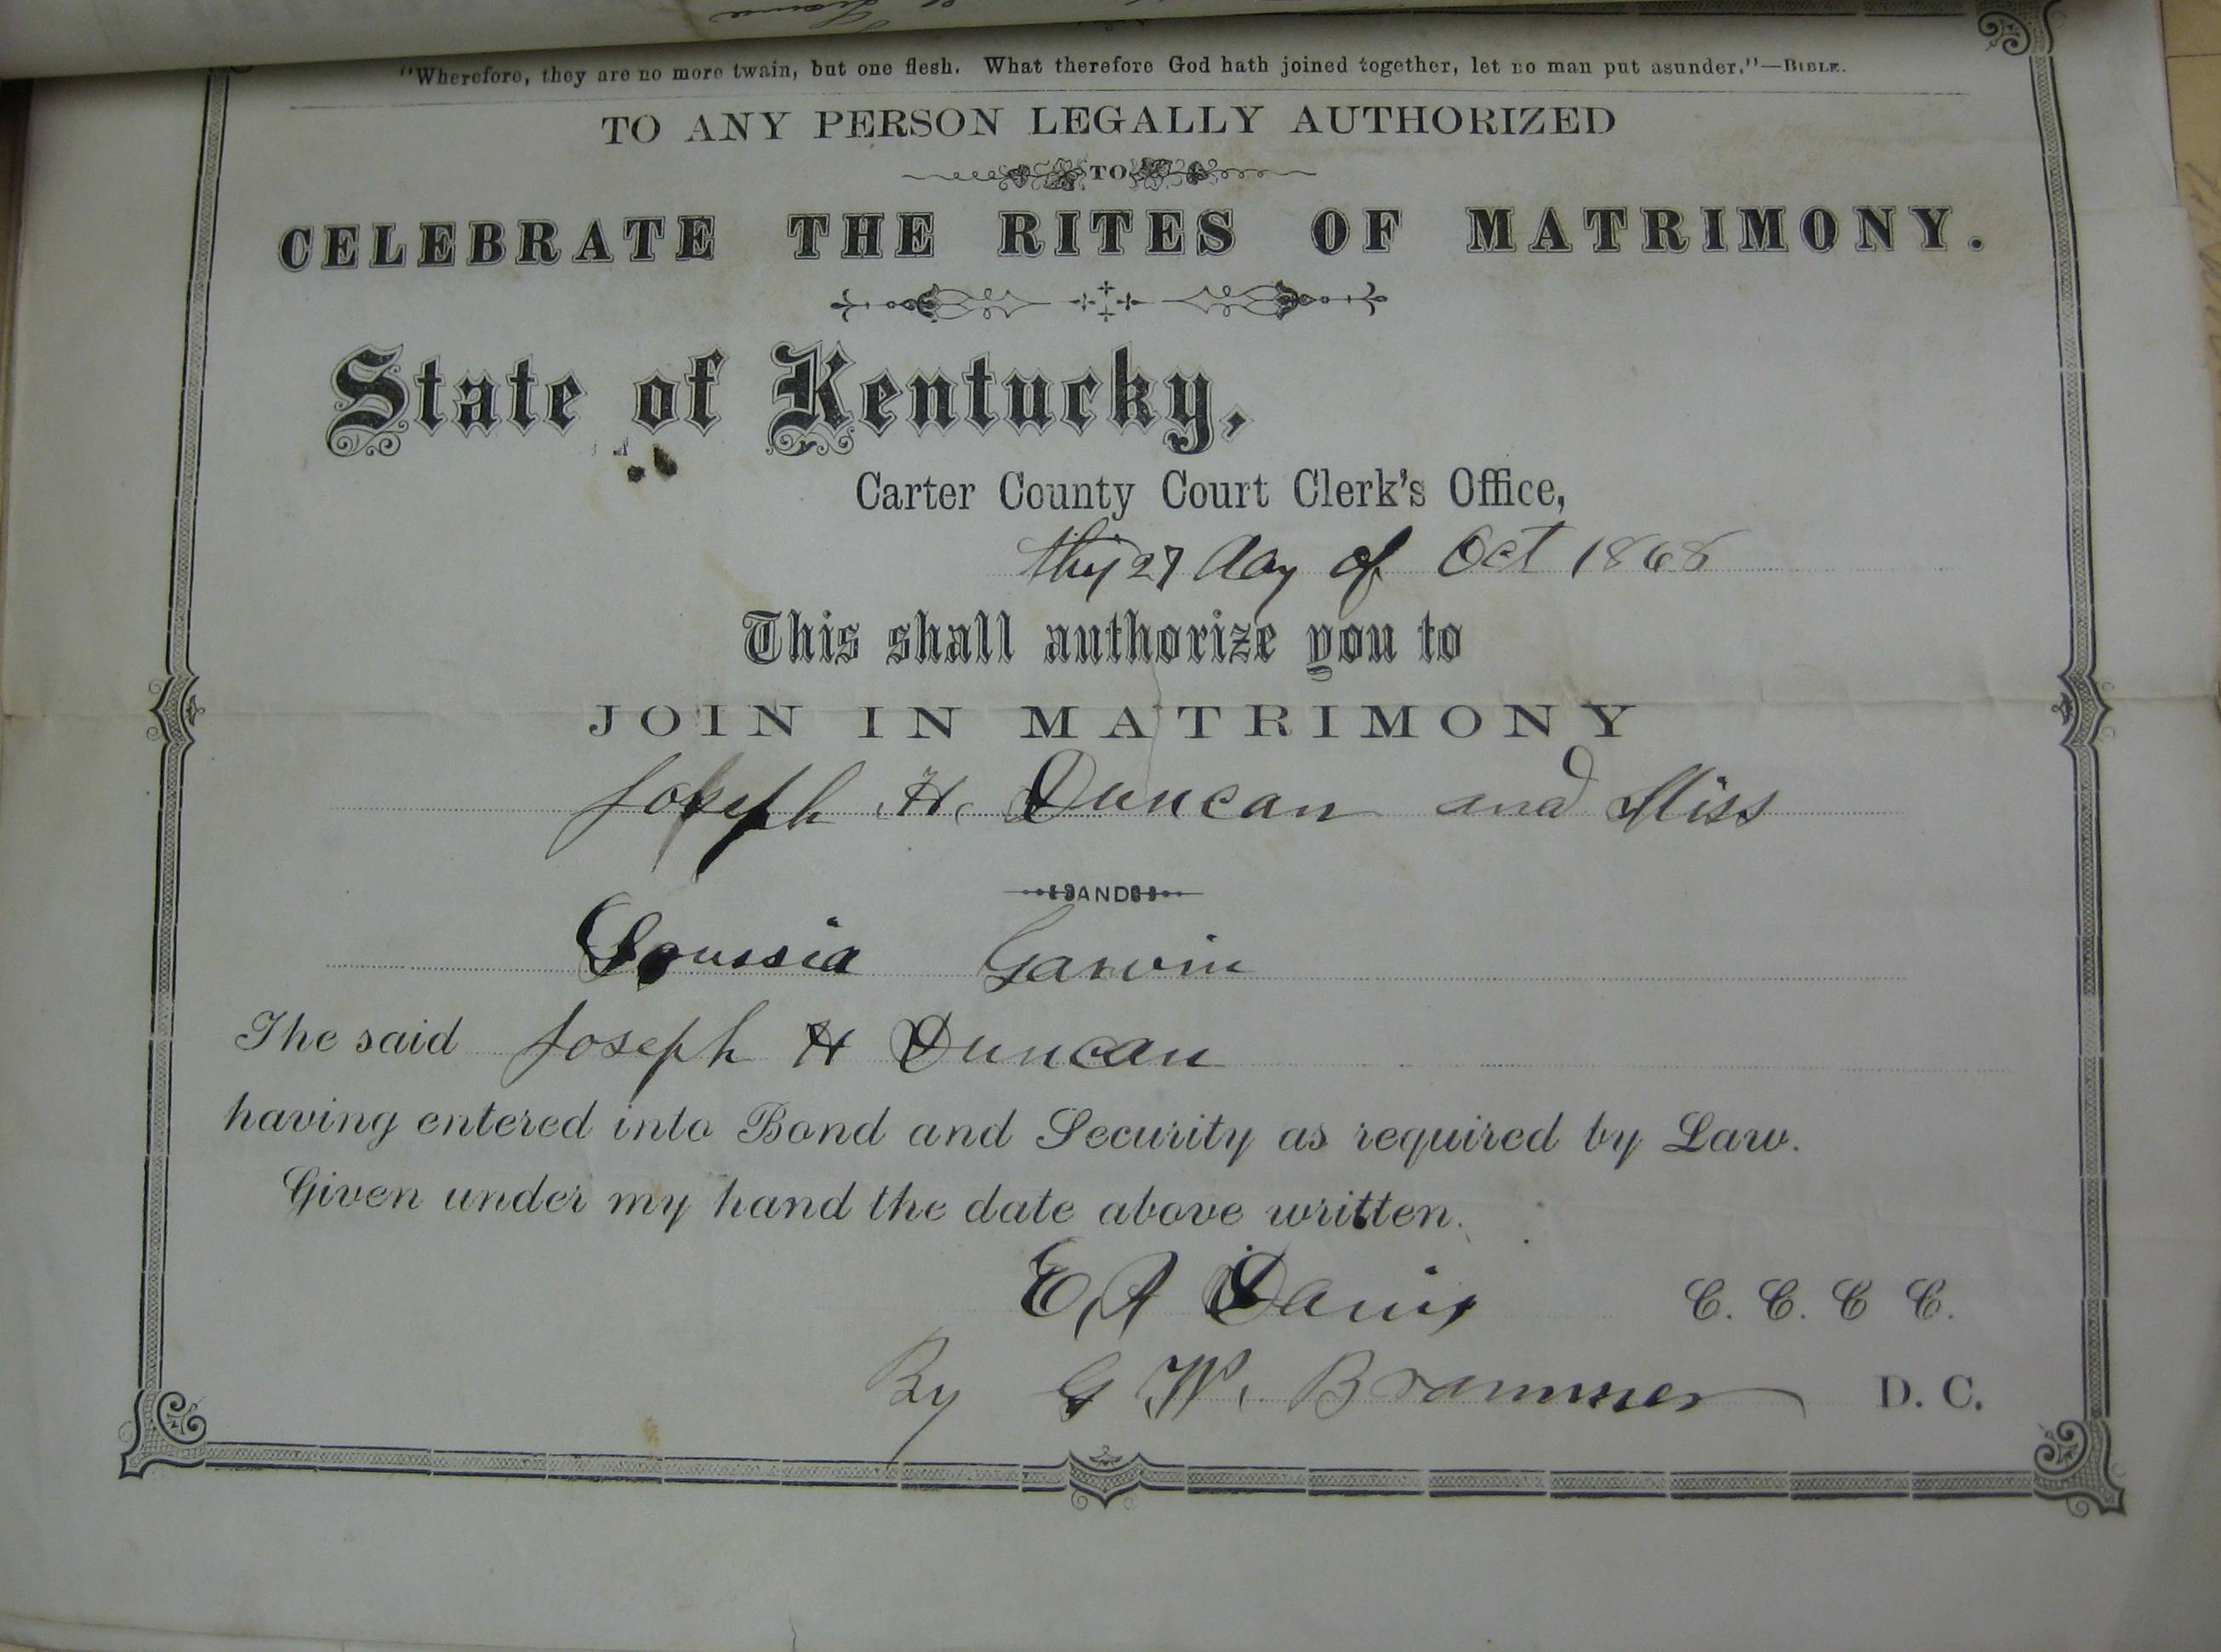 "Wherefore, they are no more twain, but one flesh. What therefore God hath joined together, let no man put asunder."—BIBLE.
TO ANY PERSON LEGALLY AUTHORIZED
TO
CELEBRATE THE RITES OF MATRIMONY.
State of Kentucky,
Carter County Court Clerk's Office,
this 27 day of Oct 1868
This shall authorize you to
JOIN IN MATRIMONY
Joseph H. Duncan and Miss
AND
Garvin
The said Joseph H Duncan
having entered into Bond and Security as required by Law.
Given under my hand the date above written.
Davis C. C. C C.
By G W. Brammer D. C.